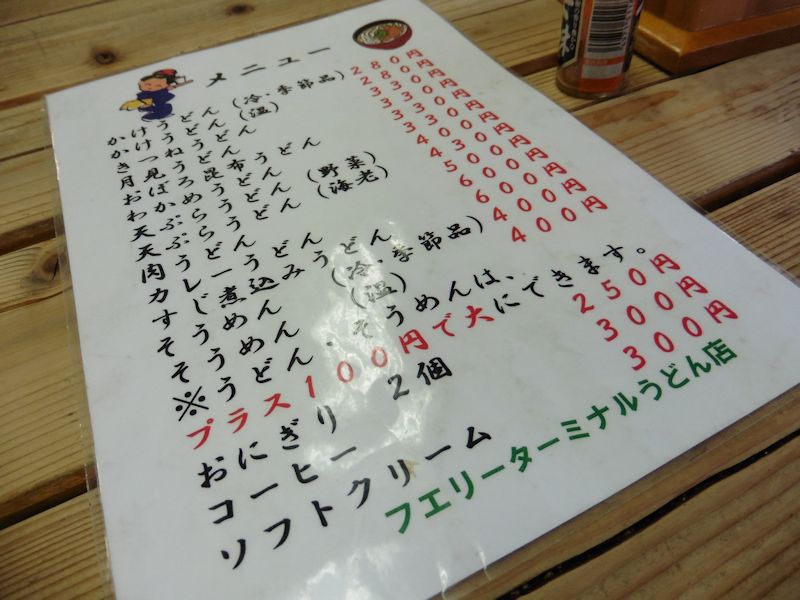 メニュー
かけうどん (冷・季節品) 280円
かけうどん (温) 280円
きつねうどん 330円
月見うどん 330円
おぼろ昆布うどん 330円
わかめうどん 330円
天ぷらうどん (野菜) 400円
天ぷらうどん (海老) 430円
肉うどん 500円
カレーうどん 600円
すじ煮込みうどん 600円
そうめん (冷・季節品) 400円
そうめん (温) 400円
※うどん・そうめんは、
プラス100円で大にできます。
おにぎり 2個 250円
コーヒー 300円
ソフトクリーム 300円
フエリーターミナルうどん店